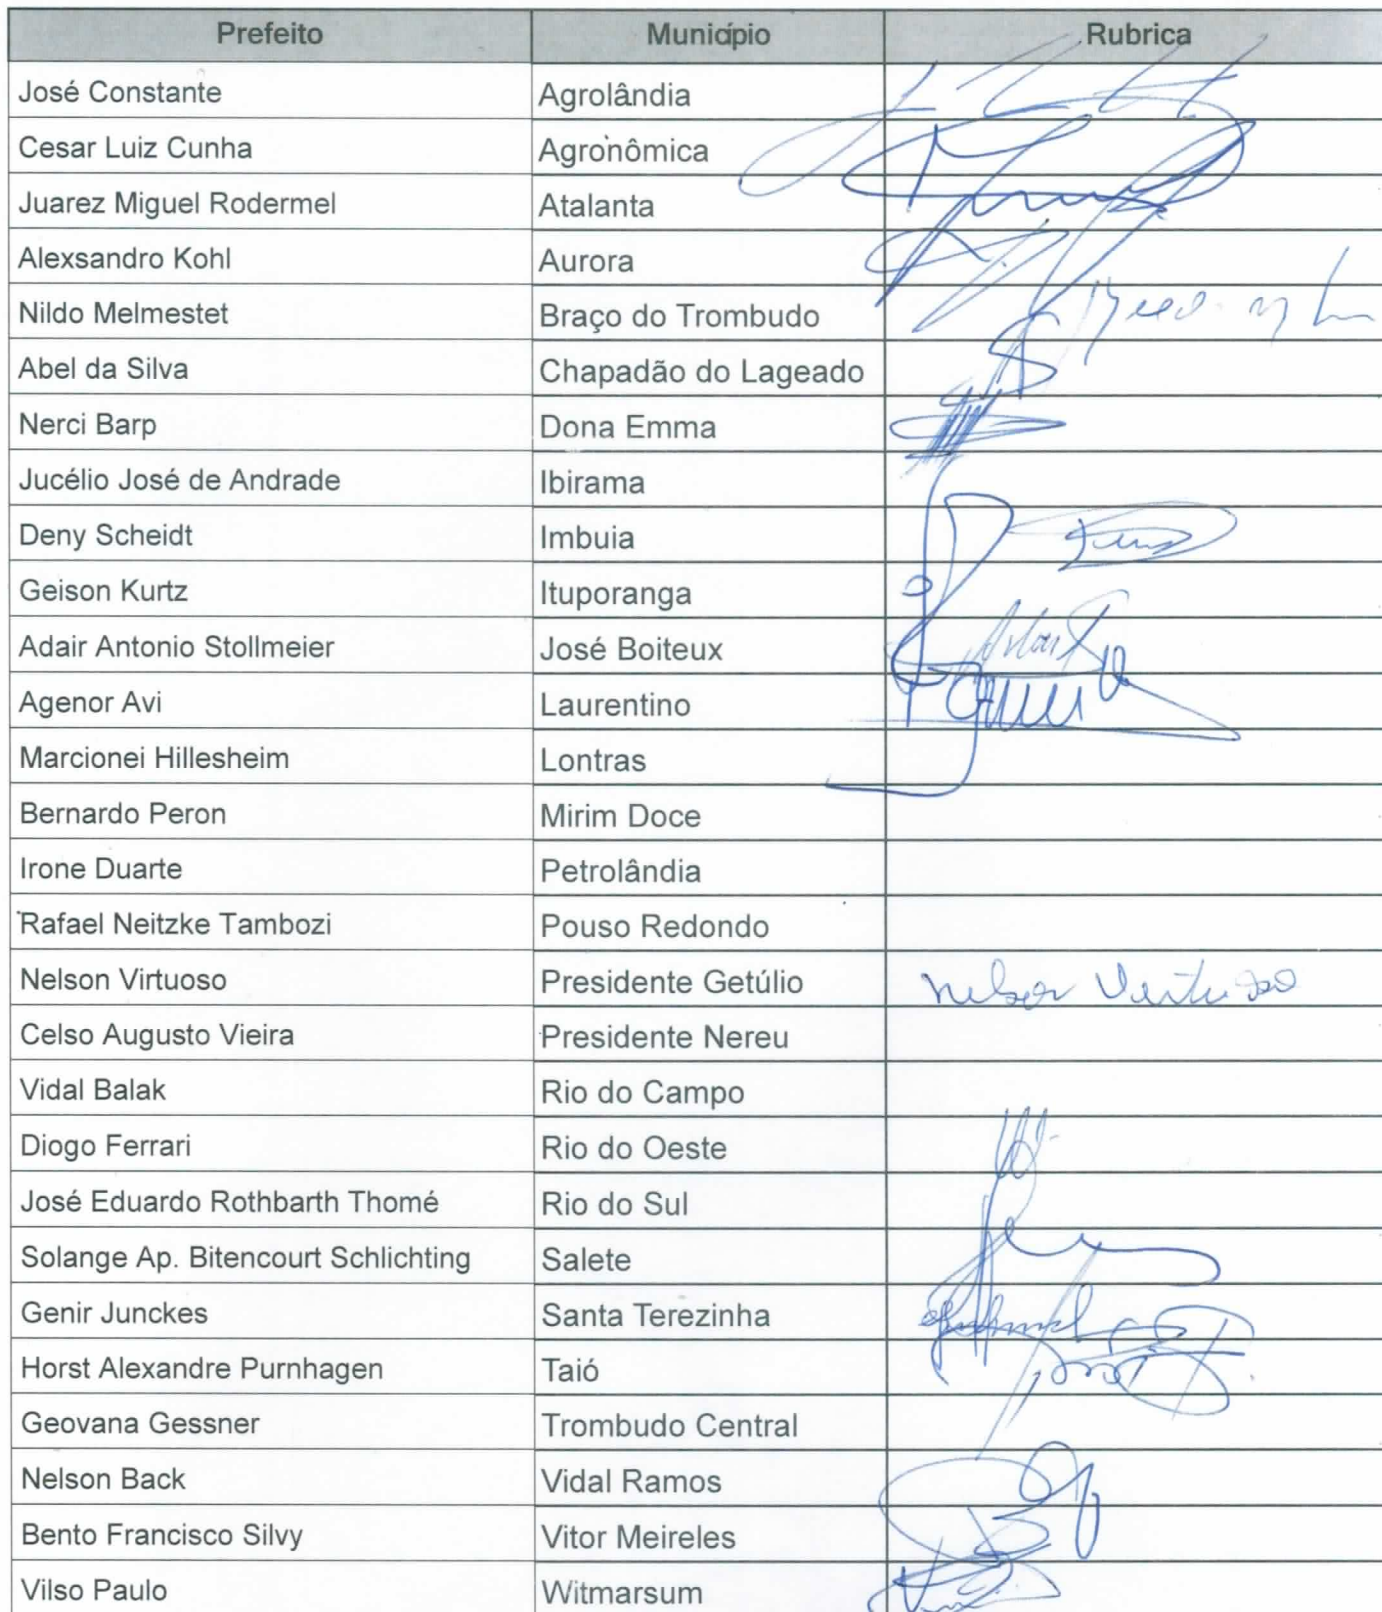 Prefeito Município Rubrica
José Constante Agrolândia
Cesar Luiz Cunha Agronômica
Juarez Miguel Rodermel Atalanta
Alexsandro Kohl Aurora
Nildo Melmestet Braço do Trombudo
Abel da Silva Chapadão do Lageado
Nerci Barp Dona Emma
Jucélio José de Andrade Ibirama
Deny Scheidt Imbuia
Geison Kurtz Ituporanga
Adair Antonio Stollmeier José Boiteux
Agenor Avi Laurentino
Marcionei Hillesheim Lontras
Bernardo Peron Mirim Doce
Irone Duarte Petrolândia
Rafael Neitzke Tambozi Pouso Redondo
Nelson Virtuoso Presidente Getúlio Nelson Virtuoso
Celso Augusto Vieira Presidente Nereu
Vidal Balak Rio do Campo
Diogo Ferrari Rio do Oeste
José Eduardo Rothbarth Thomé Rio do Sul
Solange Ap. Bitencourt Schlichting Salete
Genir Junckes Santa Terezinha
Horst Alexandre Purnhagen Taió
Geovana Gessner Trombudo Central
Nelson Back Vidal Ramos
Bento Francisco Silvy Vitor Meireles
Vilso Paulo Witmarsum